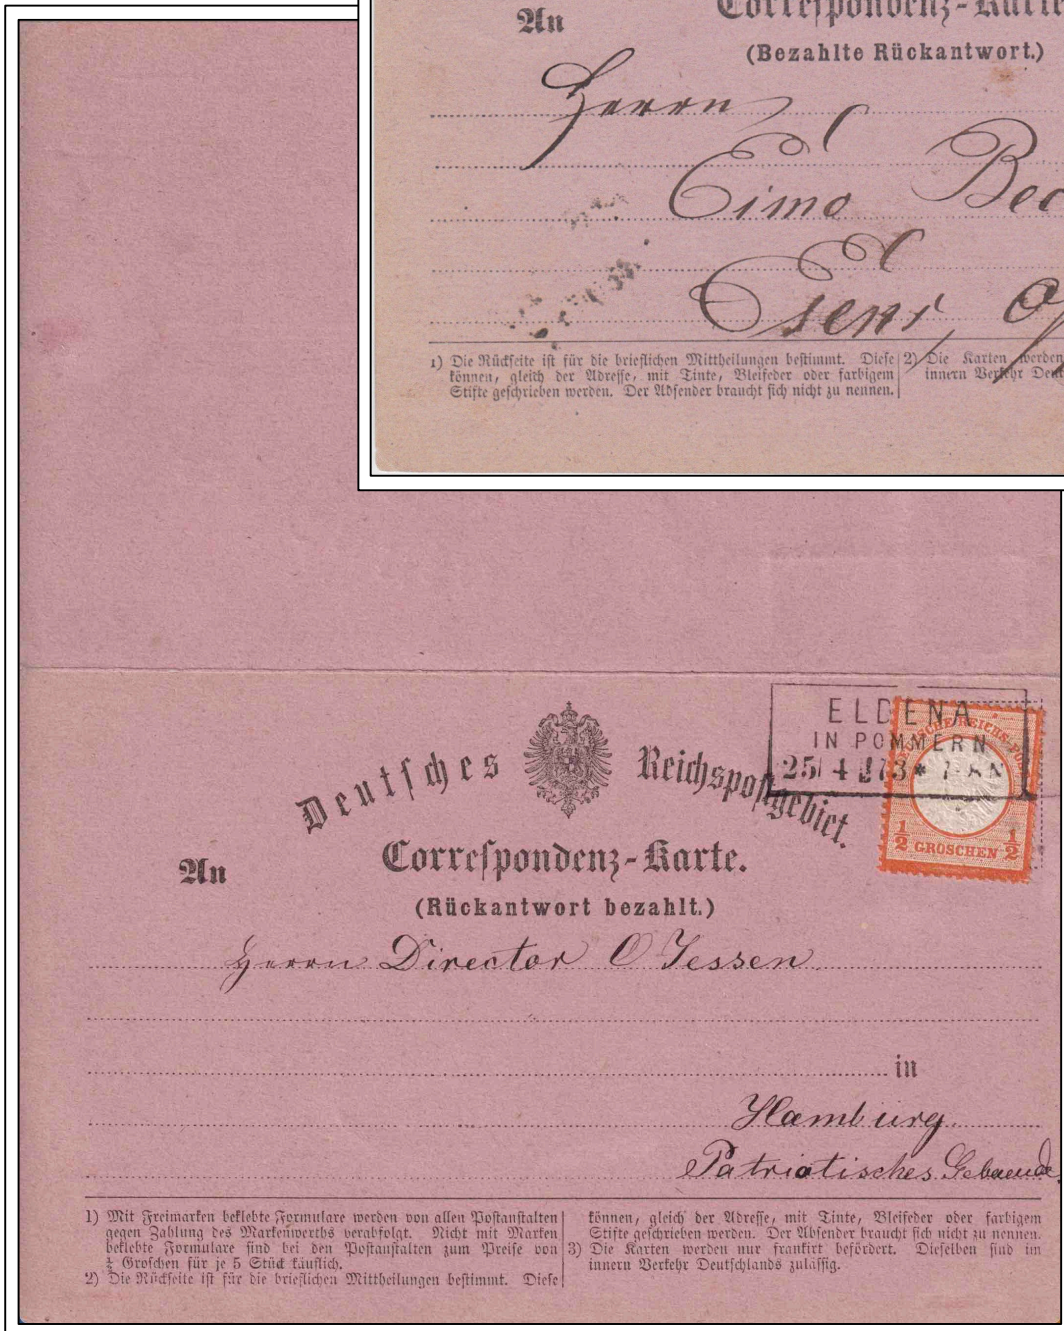 An
Correspondenz-Karte
(Bezahlte Rückantwort.)
Herrn
Eimo Bec
Esens,
1) Die Rückseite ist für die brieflichen Mittheilungen bestimmt. Diese
können, gleich der Adresse, mit Tinte, Bleifeder oder farbigem
Stifte geschrieben werden. Der Absender braucht sich nicht zu nennen.
2) Die Karten werden
innern Verkehr Deut
ELDENA
IN POMMERN
25 4 73 *
DEUTSCHE REICHS-POST
½ GROSCHEN ½
Deutsches Reichspostgebiet.
An
Correspondenz-Karte.
(Rückantwort bezahlt.)
Herrn Director O Jessen
in
Hamburg.
Patriotisches Gebaeude
1) Mit Freimarken beklebte Formulare werden von allen Postanstalten
gegen Zahlung des Markenwerths verabfolgt. Nicht mit Marken
beklebte Formulare sind bei den Postanstalten zum Preise von
Groschen für je 5 Stück käuflich.
2) Die Rückseite ist für die brieflichen Mittheilungen bestimmt. Diese
können, gleich der Adresse, mit Tinte, Bleifeder oder farbigem
Stifte geschrieben werden. Der Absender braucht sich nicht zu nennen.
3) Die Karten werden nur frankirt befördert. Dieselben sind im
innern Verkehr Deutschlands zulässig.